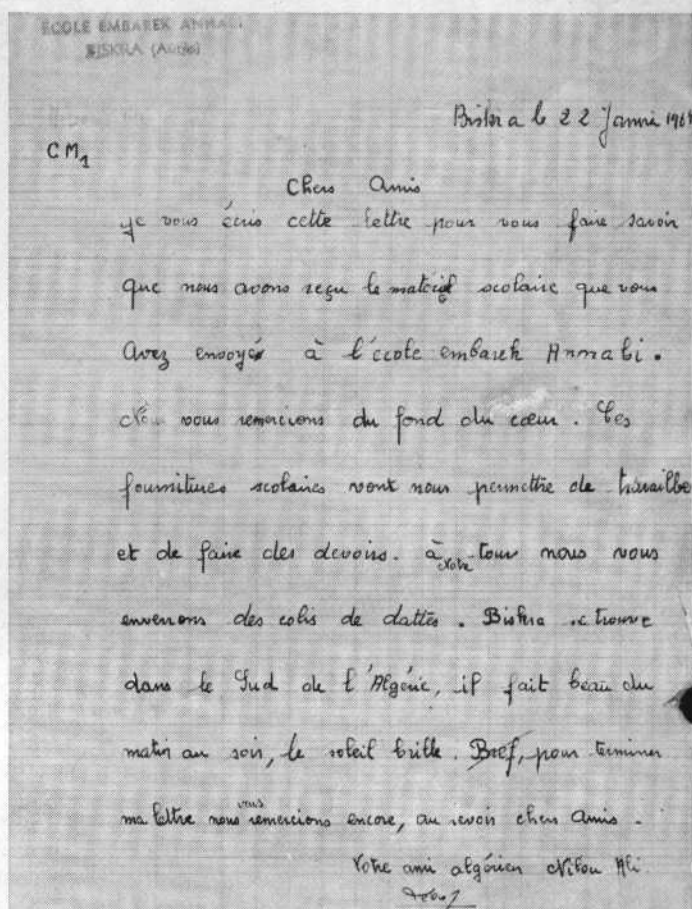 ECOLE EMBAREK ANNABI
BISKRA (Aurès)
Biskra le 22 Janvie 196
CM1
Chers Amis
Je vous écris cette lettre pour vous faire savoir
que nous avons reçu le matériel scolaire que vous
Avez envoyé à l'école embarek Annabi.
Nous vous remercions du fond du cœur. Ces
fournitures scolaires vont nous permettre de travailler
et de faire des devoirs. à notre tour nous vous
enverrons des colis de dattes. Biskra se trouve
dans le Sud de l'Algérie, il fait beau du
matin au soir, le soleil brille. Bref, pour terminer
ma lettre nous vous remercions encore, au revoir chers Amis.
Votre ami algérien Ali